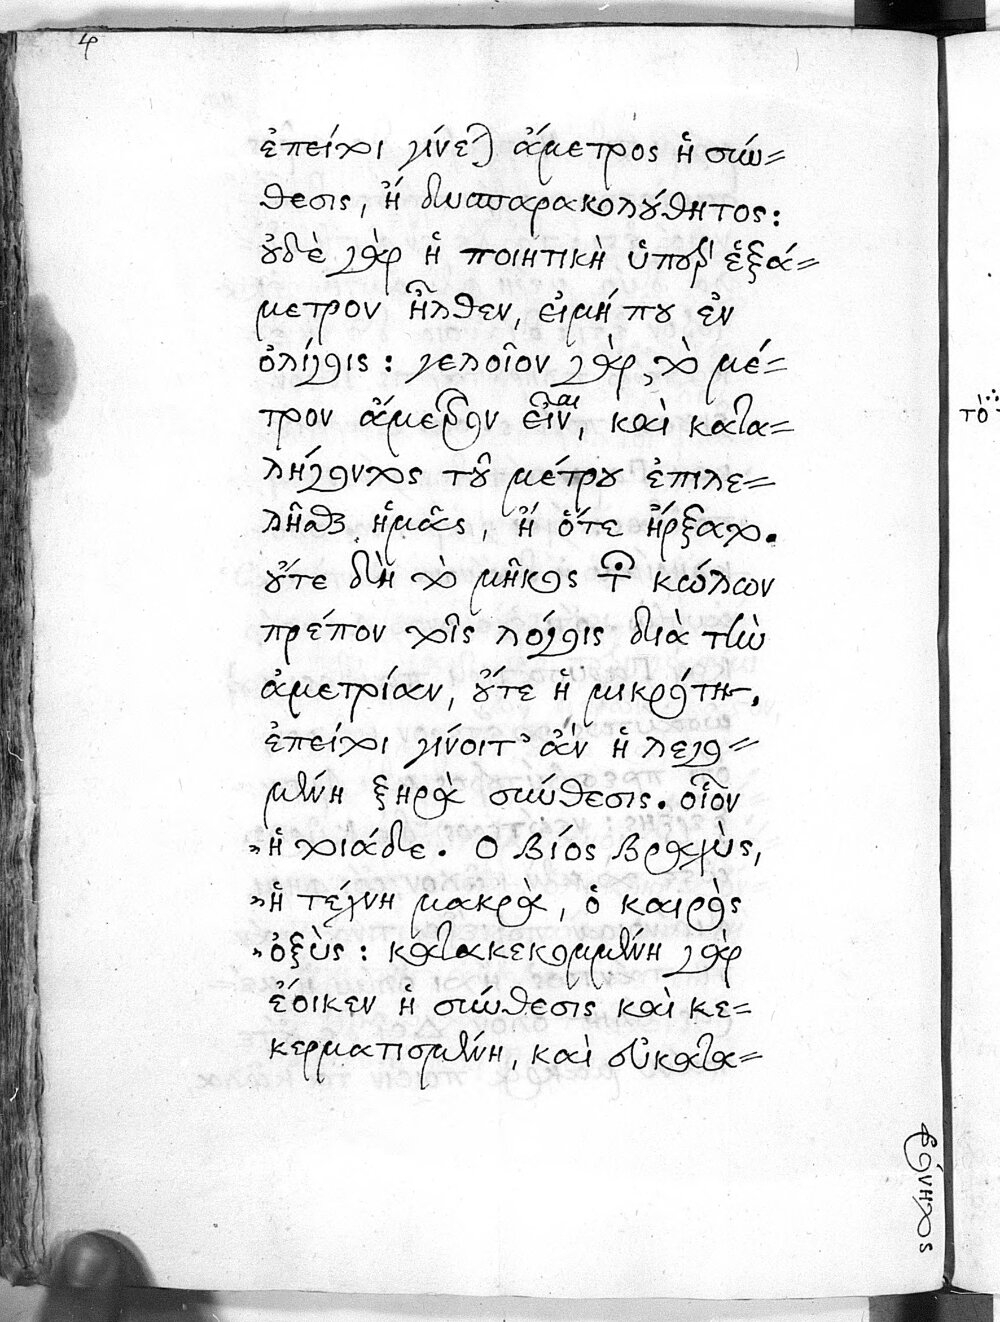 ἐπείτοι γίνεται ἄμετρος ἡ σύν=
θεσις, ἢ δυσπαρακολούθητος:
οὐδὲ γὰρ ἡ ποιητικὴ ὑπὲρ ἑξά=
μετρον ἦλθεν, εἰμή που ἐν
ὀλίγοις: γελοῖον γὰρ, τὸ μέ=
τρον ἄμετρον εἶναι, καὶ κατα=
λήγοντος τοῦ μέτρου ἐπιλε=
λῆσθαι ἡμᾶς, ἢ ὅτε ἤρξατο.
οὔτε δὴ τὸ μῆκος τῶν κώλων
πρέπον τοῖς λόγοις διὰ τὴν
ἀμετρίαν, οὔτε ἡ μικρότης.
ἐπείτοι γίνοιτ' ἂν ἡ λεγο=
μένη ξηρὰ σύνθεσις. οἷον
» ἡ τοιάδε. Ο βίος βραχὺς,
» ἡ τέχνη μακρὰ, ὁ καιρὸς
» ὀξὺς: κατακεκομμένη γὰρ
ἔοικεν ἡ σύνθεσις καὶ κε=
κερματισμένη, καὶ εὐκατα=
φρόνητος